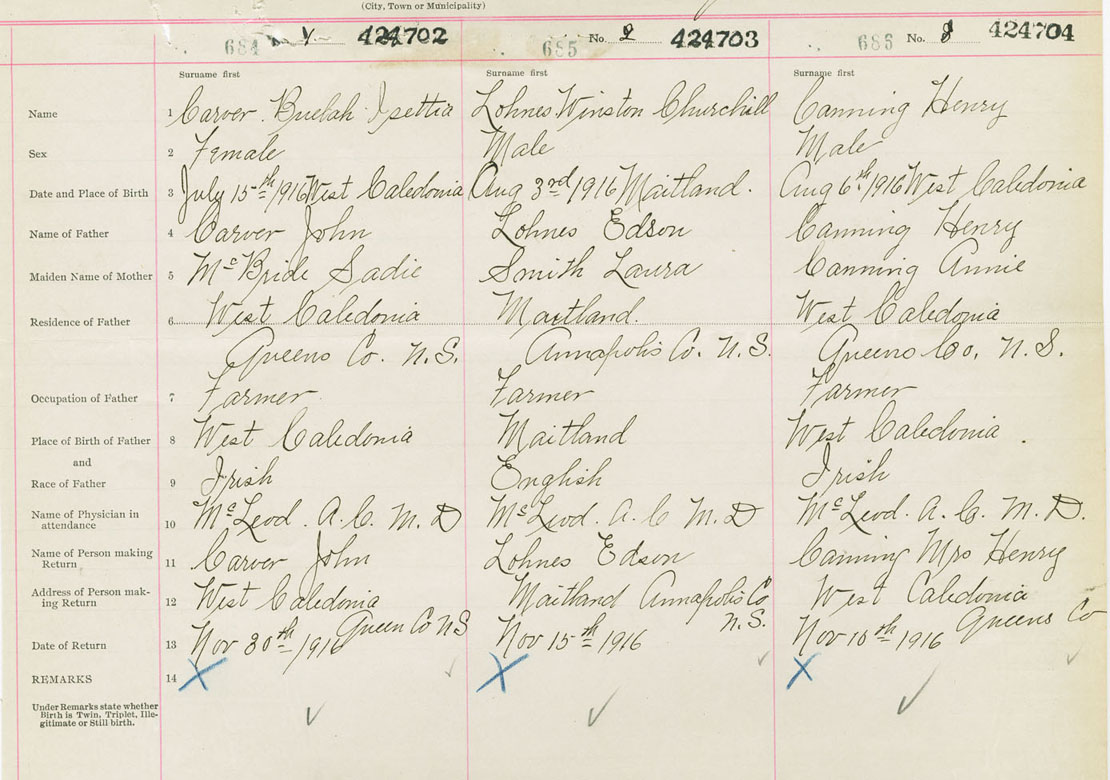 (City, Town or Municipality)
684 424702 685 No. 2 424703 686 No. 8 424704
Surname first Surname first Surname first
Name 1 Carver Buelah Isettia Lohnes Winston Churchill Canning Henry
Sex 2 Female Male Male
Date and Place of Birth 3 July 15th/1916 West Caledonia Aug 3rd/1916 Maitland. Aug 6th/1916 West Caledonia
Name of Father 4 Carver John Lohnes Edson Canning Henry
Maiden Name of Mother 5 McBride Sadie Smith Laura Canning Annie
Residence of Father 6 West Caledonia Maitland. West Caledonia
Queens Co. N.S. Annapolis Co. N.S. Queens Co. N.S.
Occupation of Father 7 Farmer Farmer Farmer
Place of Birth of Father 8 West Caledonia Maitland West Caledonia.
and
Race of Father 9 Irish English Irish
Name of Physician in
attendance 10 McLeod. A. C. M. D McLeod. A. C M. D McLeod. A. C. M. D.
Name of Person making
Return 11 Carver John Lohnes Edson Canning Mrs Henry
Address of Person mak-
ing Return 12 West Caledonia Maitland Annapolis Co West Caledonia
Queen Co N S N.S. Queens Co
Date of Return 13 Nov 30th/1916 Nov 15th 1916 Nov 10th 1916
REMARKS 14
Under Remarks state whether
Birth is Twin, Triplet, Ille-
gitimate or Still birth.